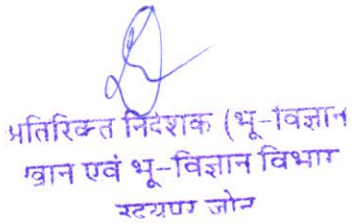 अतिरिक्त निदेशक (भू-विज्ञान
खान एवं भू-विज्ञान विभाग
उदयपुर जोन